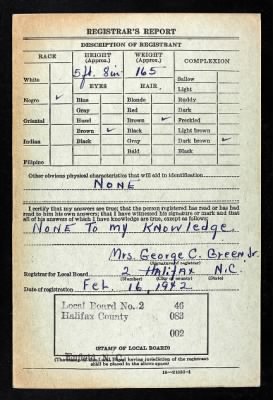 REGISTRAR'S REPORT
DESCRIPTION OF REGISTRANT
RACE
HEIGHT
(Approx.)
WEIGHT
(Approx.)
COMPLEXION
5 ft. 8 in. 165
White
EYES
HAIR
Sallow
Light
Negro ✓
Blue
Blonde
Ruddy
Gray
Red
Dark
Oriental
Hazel
Brown ✓
Freckled
Brown ✓
Black
Light brown
Indian
Black
Gray
Dark brown ✓
Bald
Black
Filipino
Other obvious physical characteristics that will aid in identification
NONE
I certify that my answers are true; that the person registered has read or has had
read to him his own answers; that I have witnessed his signature or mark and that
all of his answers of which I have knowledge are true, except as follows:
NONE To my Knowledge.
Mrs. George C. Green Jr.
Registrar for Local Board 2 Halifax N.C.
(Number) (City or county) (State)
Date of registration Feb. 16, 1942
Local Board No. 2 46
Halifax County 083
002
(STAMP OF LOCAL BOARD)
having jurisdiction of the registrant
shall be placed in the above space)